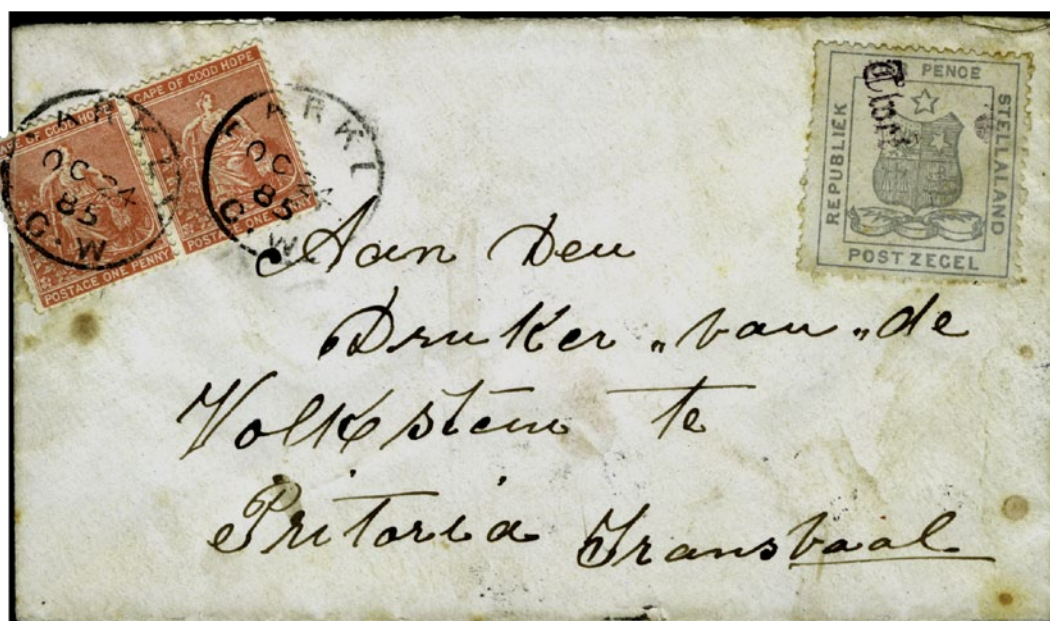 CAPE OF GOOD HOPE
POSTAGE ONE PENNY
CAPE OF GOOD HOPE
POSTAGE ONE PENNY
BARKLY
OC 24
85
G. W.
BARKLY
OC 24
85
G. W.
PENCE
REPUBLIEK
STELLALAND
POSTZEGEL
Aan Den
Drukker „van „de
Volksstem te
Pritoria Transvaal